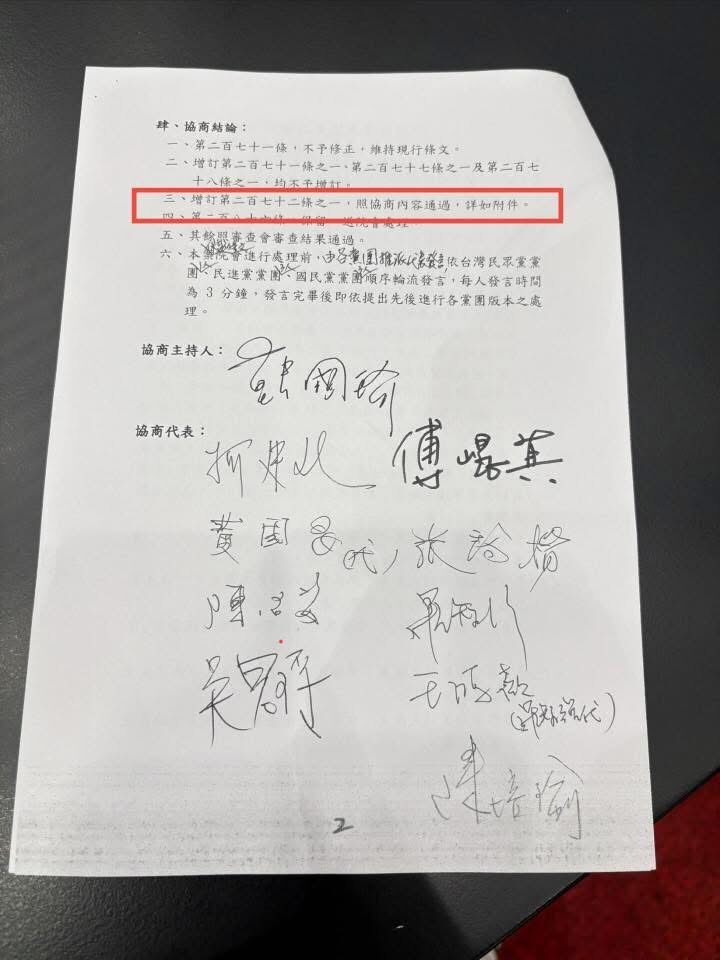 肆、協商結論：
一、第二百七十一條，不予修正，維持現行條文。
二、增訂第二百七十一條之一、第二百七十七條之一及第二百七
十八條之一，均不予增訂。
三、增訂第二百七十二條之一，照協商內容通過，詳如附件。
四、第二百八十六條，保留，送院會處理。
五、其餘照審查會審查結果通過。
六、本案院會進行處理前，由各黨團推派代表發言，依台灣民眾黨黨
團、民進黨黨團、國民黨黨團順序輪流發言，每人發言時間
為 3 分鐘，發言完畢後即依提出先後進行各黨團版本之處
理。
協商主持人：
韓國瑜
協商代表：
柯建銘 傅崐萁
黃國昌(代)
吳思瑤
陳培瑜
2